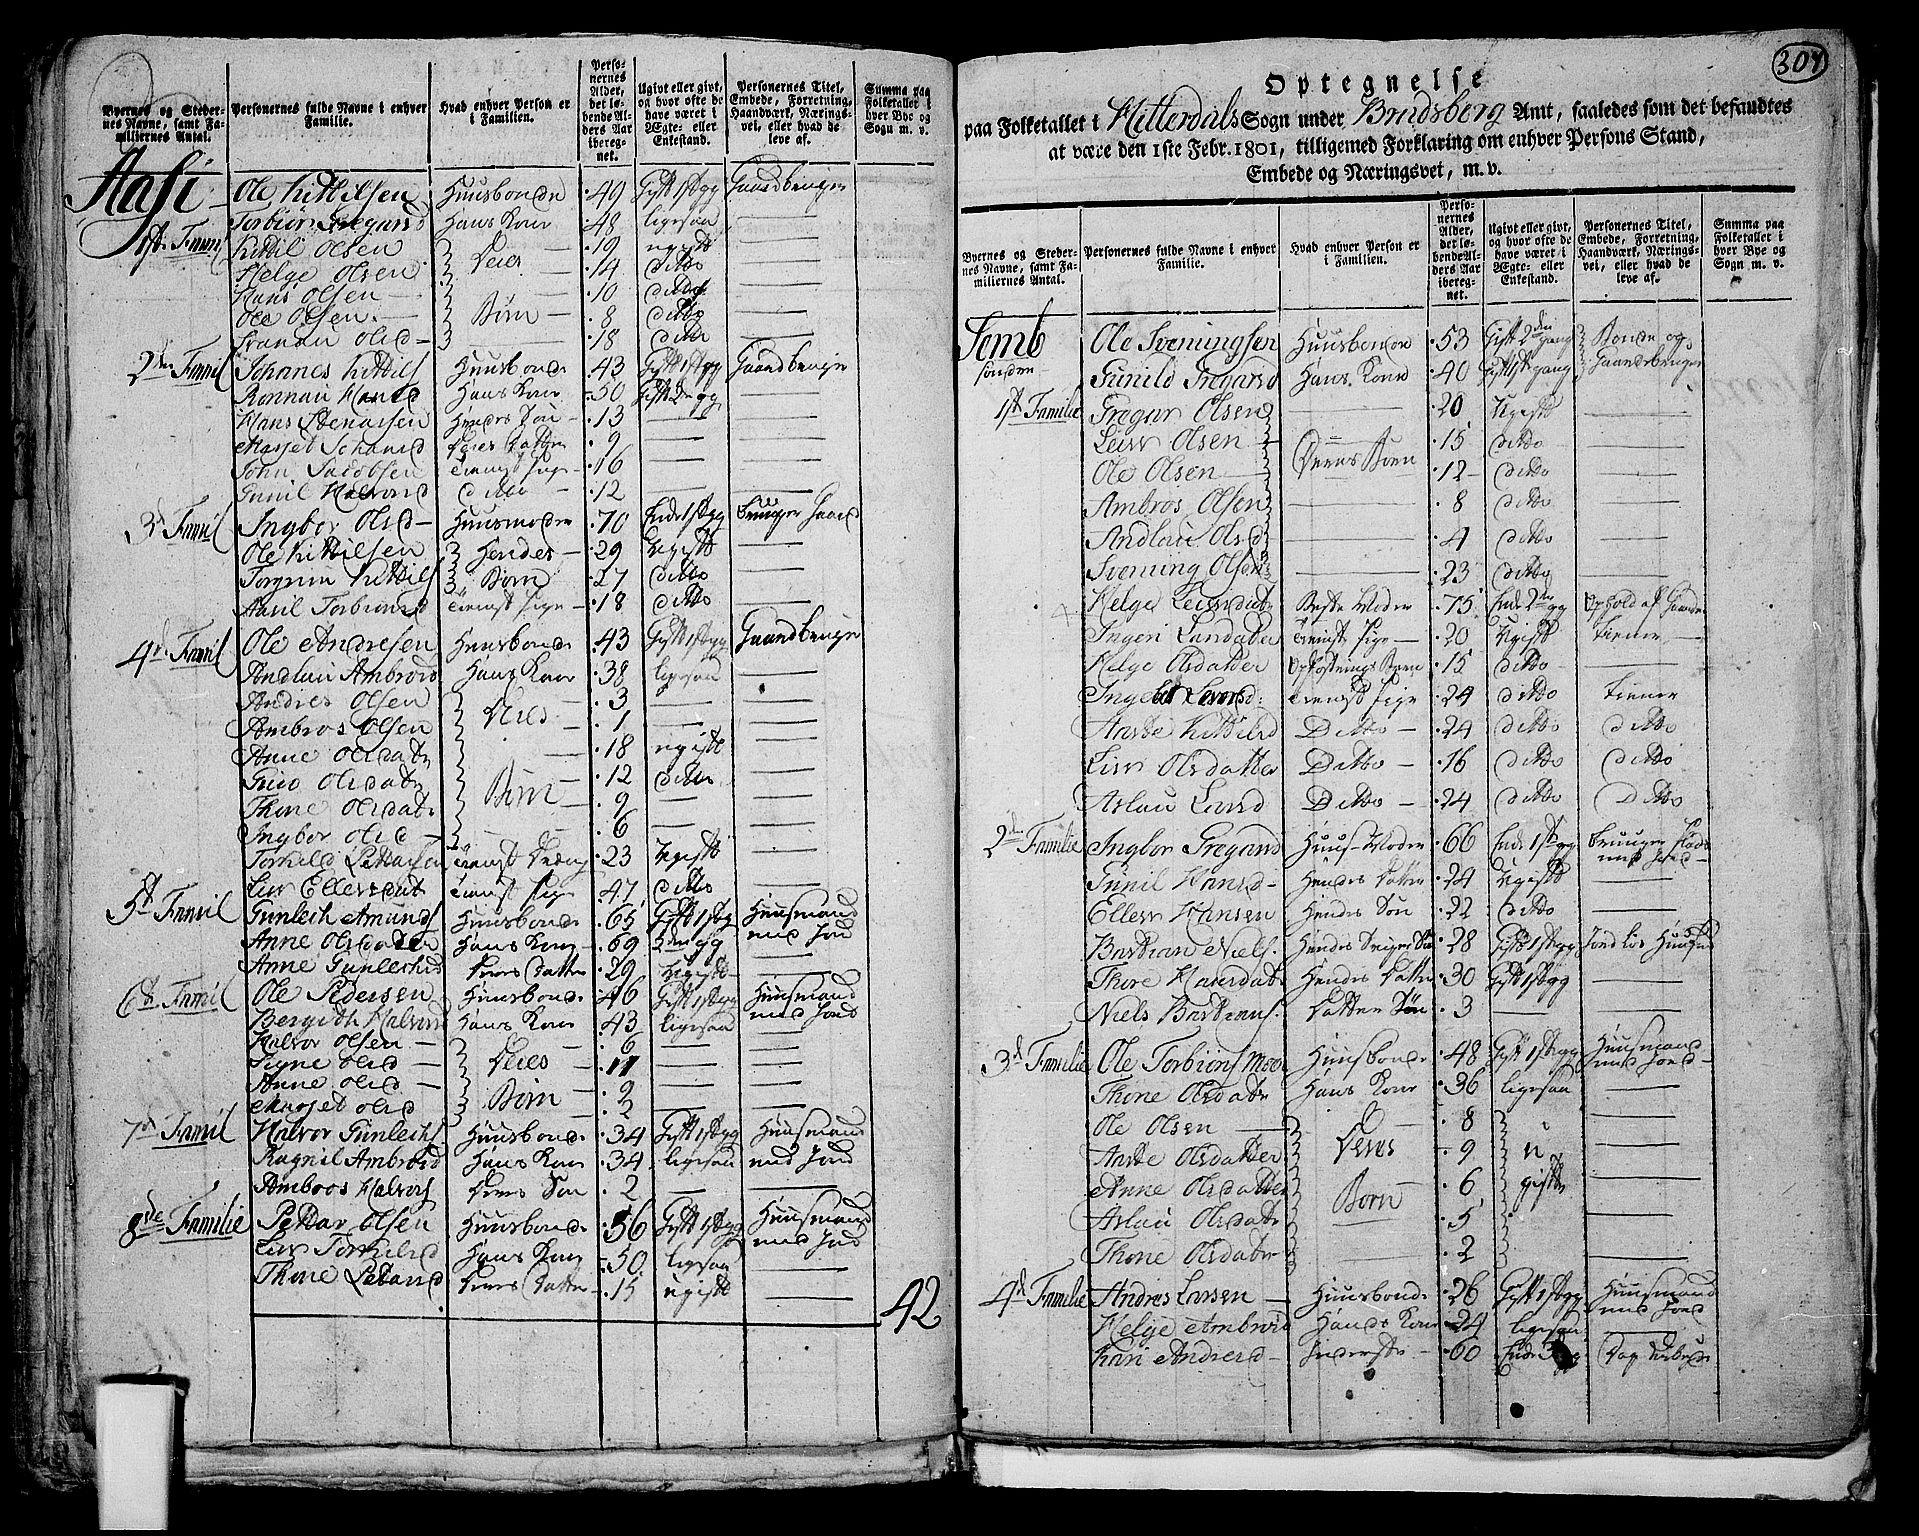 Byernes og Stedernes Navne, samt Familiernes Antal.
Personernes fulde Navne i enhver Familie.
Hvad enhver Person er i Familien.
Personernes Alder, det løbende Alders Aar iberegnet.
Ugivt eller givt, og hvor ofte de have været i Ægte- eller Enkestand.
Personernes Titel, Embede, Forretning, Haandværk, Næringsvei, eller hvad de leve af.
Summa paa Folketallet i hver Bye og Sogn m. v.
Aasi Ole Kittilsen Huusbonde 49 Gift 1st gg Gaardbruger
1st Famil Torbiør Gregarsd Hans Kone 48 ligesaa
Kittil Olsen 19 ugift
Helge Olsen Deres 14 ditto
Hans Olsen 10 ditto
Ole Olsen Børn 8 ditto
Olsd 18 ditto
2den Famil Johanes Kittils Huusbonde 43 Gift 1st gg Gaardbruger
Ronnau Hansd Hans Kone 50 Gift 2de gg
Hans Stena​rsen Hendes Søn 13
Johansd Deres Datter 9
John Jacobsen 16
Gunil Halvorsd ditto 12
3d Famil Ingbor Olsd Huusmoder 70 Enke 1st gg bruger Gaard
Ole Kittilsen Hendes 29 Ugift
Torgrim Kittils Børn 27 ditto
Aasil Torbiørnsd Tienest Pige 18 ditto
4d Famil Ole Andresen Huusbonde 43 Gift 1st gg Gaardbruger
Andlau Ambrosd Hans Kone 38 ligesaa
Andres Olsen 3
Ambros Olsen Deres 1
Anne Olsdatr 18 ugift
Guro Olsdatr 12 ditto
Thone Olsdatr Børn 9
Ingbor Olsd 6
Torkild Pettersen Tienest Dreng 23 Ugift
Liv Ellefsdat Tienest Pige 47 ditto
5t Famil Gunleik Amunds Huusbonde 65 Gift 1st gg Huusmand
Anne Olsdatter Hans Kone 69 2den gg med Jord
Anne Gunleiksd Deres Datter 29 Ugift
6t Famil Ole Pedersen Huusbonde 46 Gift 1st gg Huusmand
Bergith Halvorsd Hans Kone 43 ligesaa med Jord
Halvor Olsen 6
Signe Olsd Deres 11
Anne Olsd Børn 9
Marget Olsd 2
7d Famil Halvor Gunleiks Huusbonde 34 Gift 1st gg Huusmand
Ragnil Ambrosd Hans Kone 34 ligesaa med Jord
Ambros Halvors Deres Søn 2
8de Familie Pettar Olsen Huusbonde 56 Gift 1st gg Huusmand
Liv Torkilsd Hans Kone 50 ligesaa med Jord
Thone Petarsd Deres Datter 15 ugift
42
307
Optegnelse
paa Folketallet i Hitterdals Sogn under Bradsberg Amt, saaledes som det befandtes
at være den 1ste Febr. 1801, tilligemed Forklaring om enhver Persons Stand,
Embede og Næringsvei, m. v.
Byernes og Stedernes Navne, samt Familiernes Antal.
Personernes fulde Navne i enhver Familie.
Hvad enhver Person er i Familien.
Personernes Alder, det løbende Alders Aar iberegnet.
Ugivt eller givt, og hvor ofte de have været i Ægte- eller Enkestand.
Personernes Titel, Embede, Forretning, Haandværk, Næringsvei, eller hvad de leve af.
Summa paa Folketallet i hver Bye og Sogn m. v.
Semb Ole Sveningsen Huusbonde 53 Gift 2den gang Bonde og
søndre Gunild Gregarsd Hans Kone 40 Gift 1st gang Gaardbruger
1st Familie Gregar Olsen 20 Ugift
Leiv Olsen 15 ditto
Ole Olsen Deres Børn 12 ditto
Ambros Olsen 8 ditto
Andlau Olsd 4 ditto
Svening Olsen 23 ditto
Helge Leivsdatr Beste Moder 75 Enke 2den gg Ophold af Gaarden
Ingeri Larsdatter Tienest Pige 20 Ugift tiener
Helge Olsdatter Opfostrings Barn 15 ditto
Tienest Pige 24 ditto tiener
Aaste Kittilsd Ditto 24 ditto ditto
Liv Olsdatter Ditto 16 ditto ditto
Aslau Larsd Ditto 24 ditto ditto
2den Familie Ingbor Gregarsd Huus-Moder 66 Enke 1st gg bruger Plads
Gunil Hansd Hendes Datter 24 Ugift med Jord
Ellev Hansen Hendes Søn 22 ditto
Bastian Niels. Hendes Sviger Søn 28 Gift 1st gg Jord Løs Huusmd
Thore Hansdatr Hendes Datter 30 Gift 1st gg
Niels Bastians. Datter Søn 3
3d Familie Ole Torbiøns Moe Huusbonde 48 Gift 1st gg Huusmand
Thone Olsdatr Hans Kone 36 ligesaa med Jord
Ole Olsen 8
Aaste Olsdatter Deres 9 u
Anne Olsdatter 6 gifte
Aslau Olsdatr Børn 5
Thone Olsdatr 2
4d Familie Andres Larsen Huusbonde 26 Gift 1st gg Huusmand
Helge Ambrosd Hans Kone 24 ligesaa med Jord
Kari Andersd Inderste 60